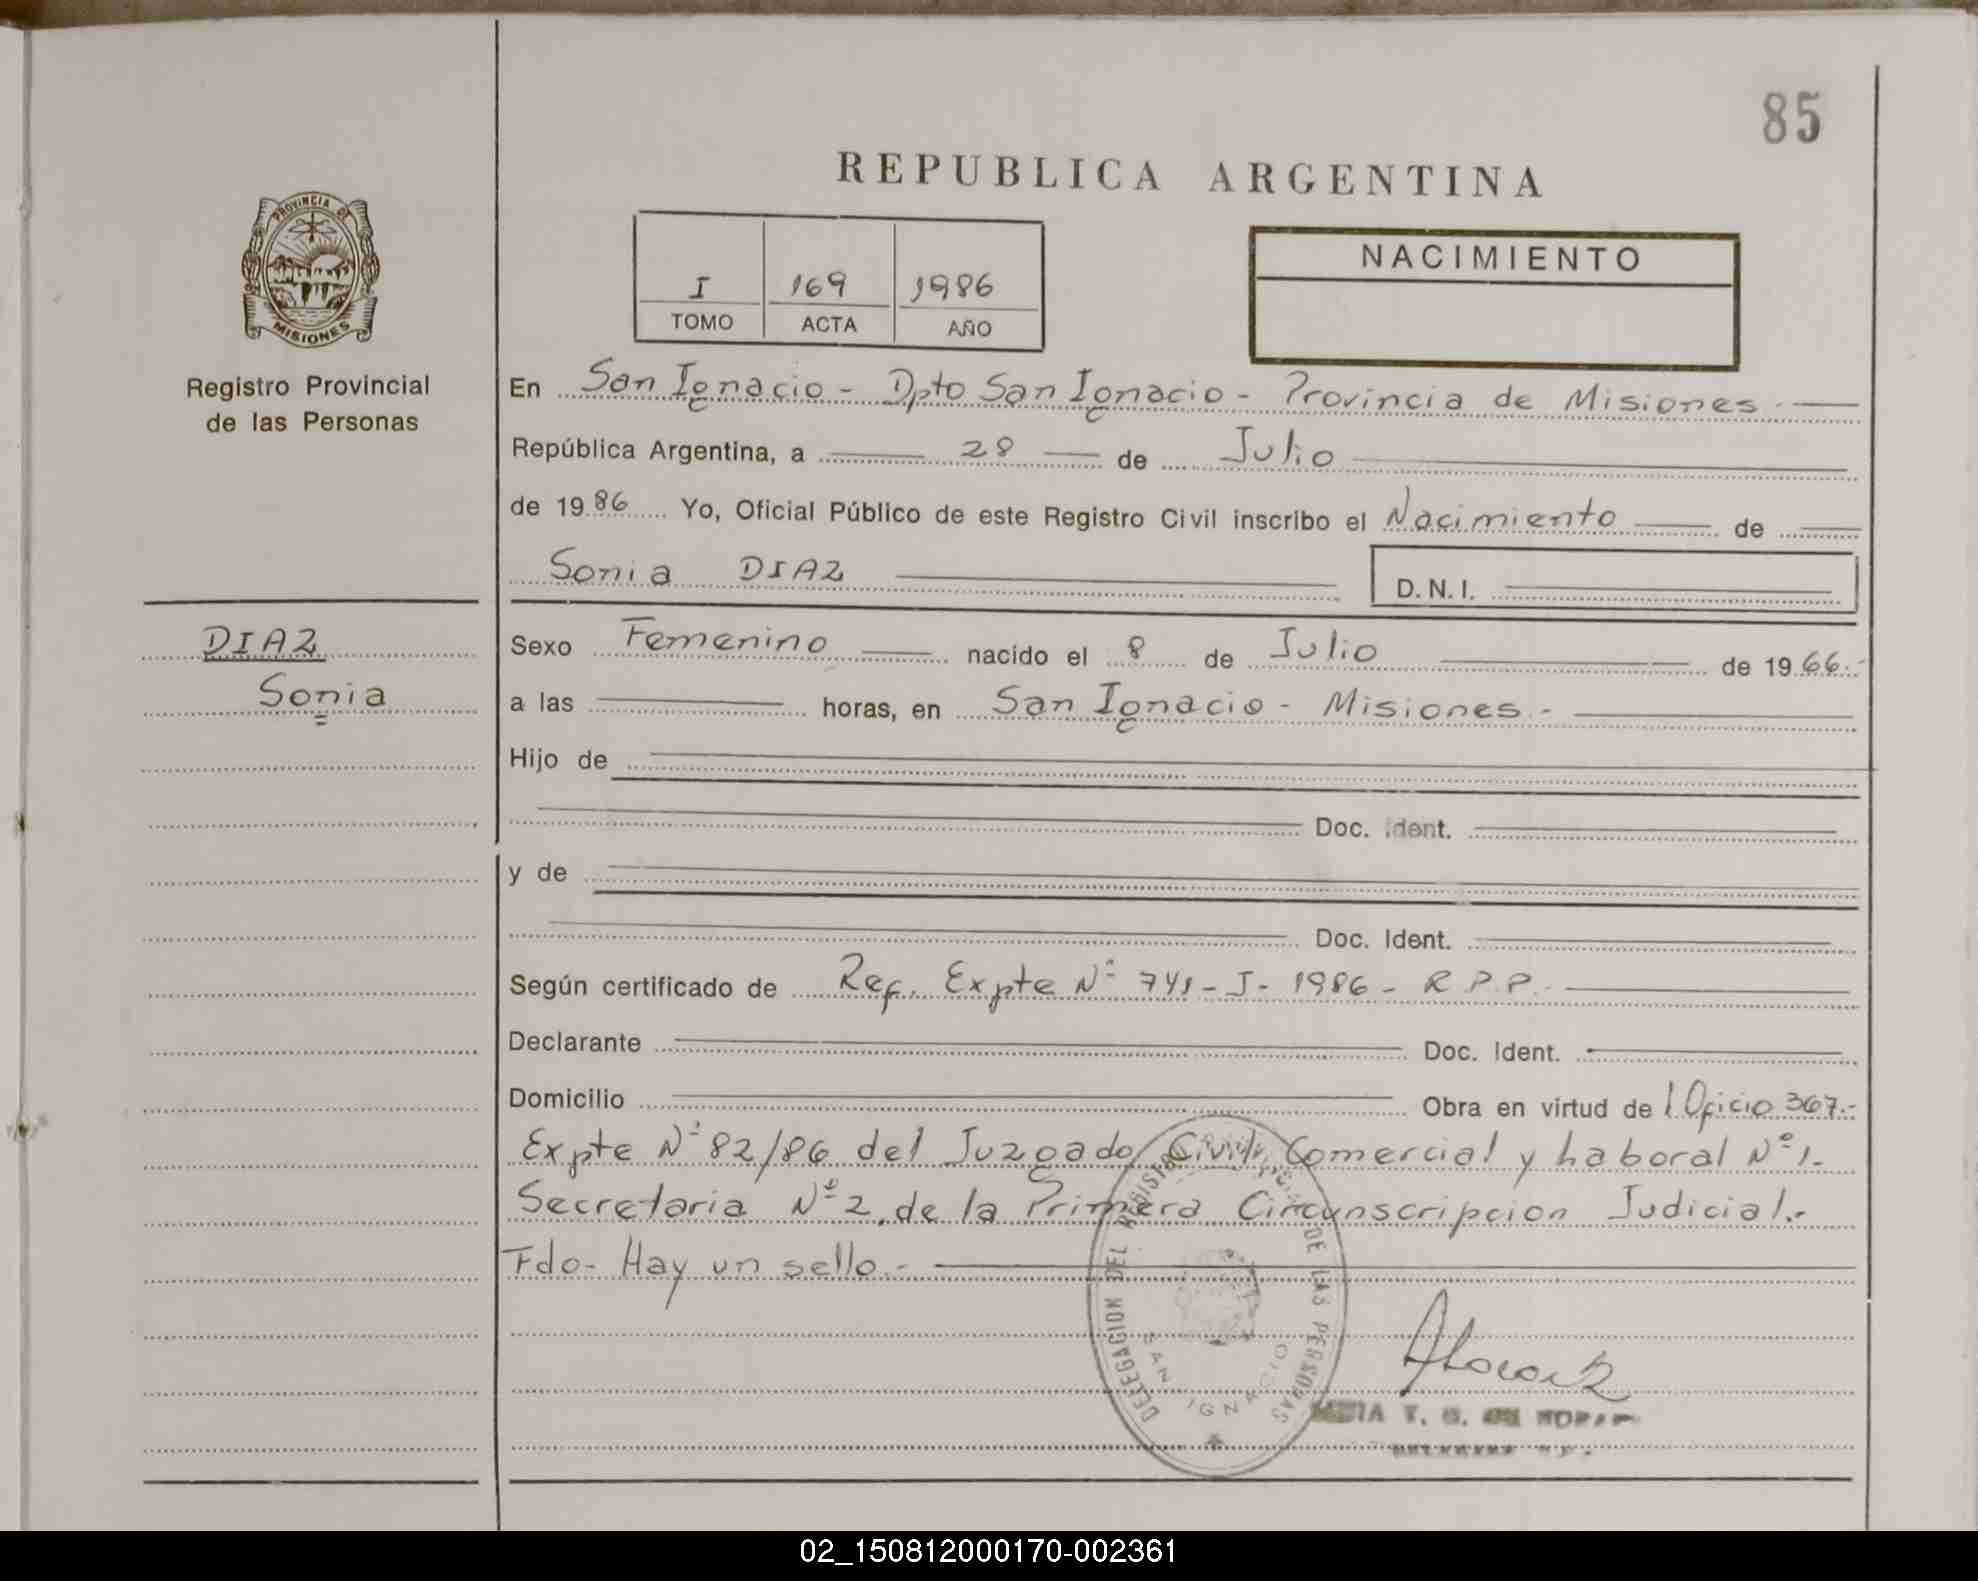 85
REPUBLICA ARGENTINA
PROVINCIA DE
MISIONES
Registro Provincial
de las Personas
NACIMIENTO
I 169 1986
TOMO ACTA AÑO
En San Ignacio - Dpto San Ignacio - Provincia de Misiones -
República Argentina, a 28 de Julio
de 1986 Yo, Oficial Público de este Registro Civil inscribo el Nacimiento de
Sonia DIAZ D.N.I.
DIAZ
Sonia
Sexo Femenino nacido el 8 de Julio de 1966.-
a las horas, en San Ignacio - Misiones.-
Hijo de
Doc. Ident.
y de
Doc. Ident.
Según certificado de Ref. Expte Nº 741-J-1986 - R.P.P.-
Declarante Doc. Ident.
Domicilio Obra en virtud de / Oficio 367.-
Expte Nº 82/86 del Juzgado Civil, Comercial y Laboral Nº 1.-
Secretaria Nº 2, de la Primera Circunscripcion Judicial.-
Fdo- Hay un sello.-
DELEGACION DEL REGISTRO DE LAS PERSONAS
SAN IGNACIO
02_150812000170-002361